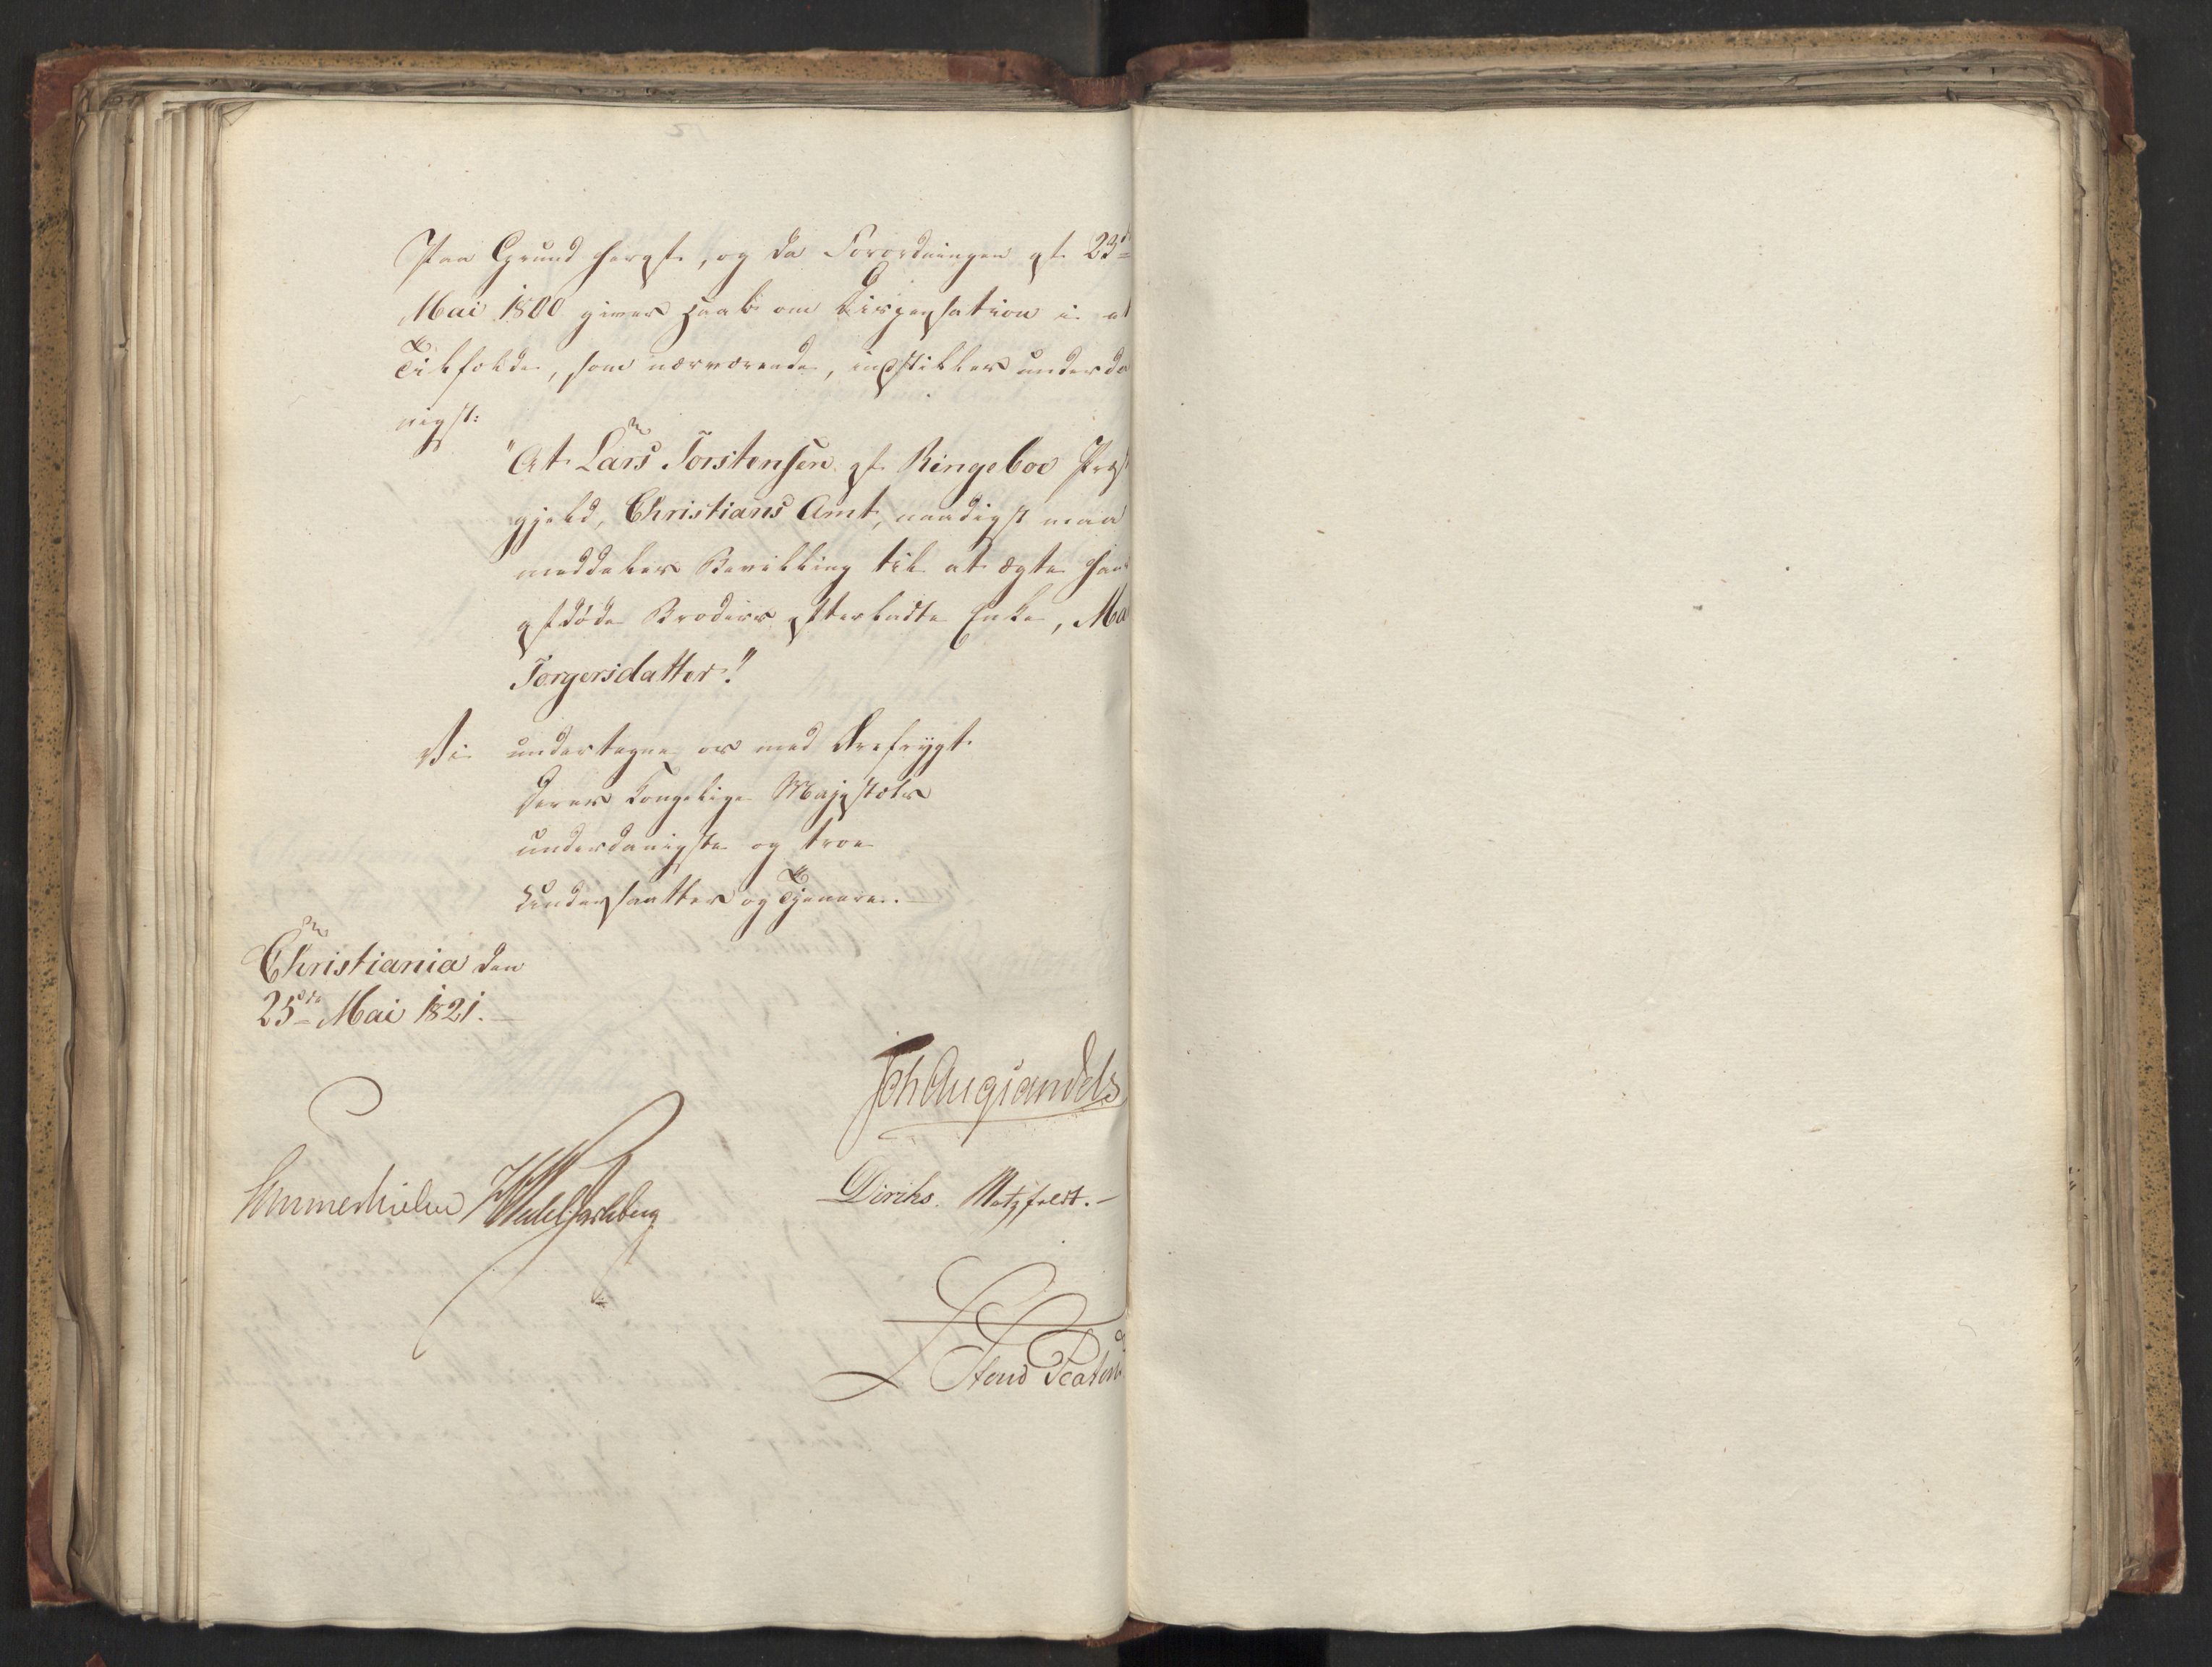 Paa Grund heraf, og da Forordningen af 23d
Mai 1800 giver Haab om Dispensation i et
Tilfælde, som nærværende, indstilles underda
nigst:
"At Lars Torstensen af Ringeboe Præst
gjeld, Christians Amt, naadigst maa
meddeles Bevilling til at ægte hans
afdøde Broders efterladte Enke, Ma
Torgersdatter."
Vi undertegne os med Ærefrygt
Deres Kongelige Majestæts
underdanigste og troe
Undersaatter og Tjenere.
Christiania den
25de Mai 1821.
Joh Aug Sandels
Sommerhielm HWedel Jarlsberg Diriks. Motzfeldt.